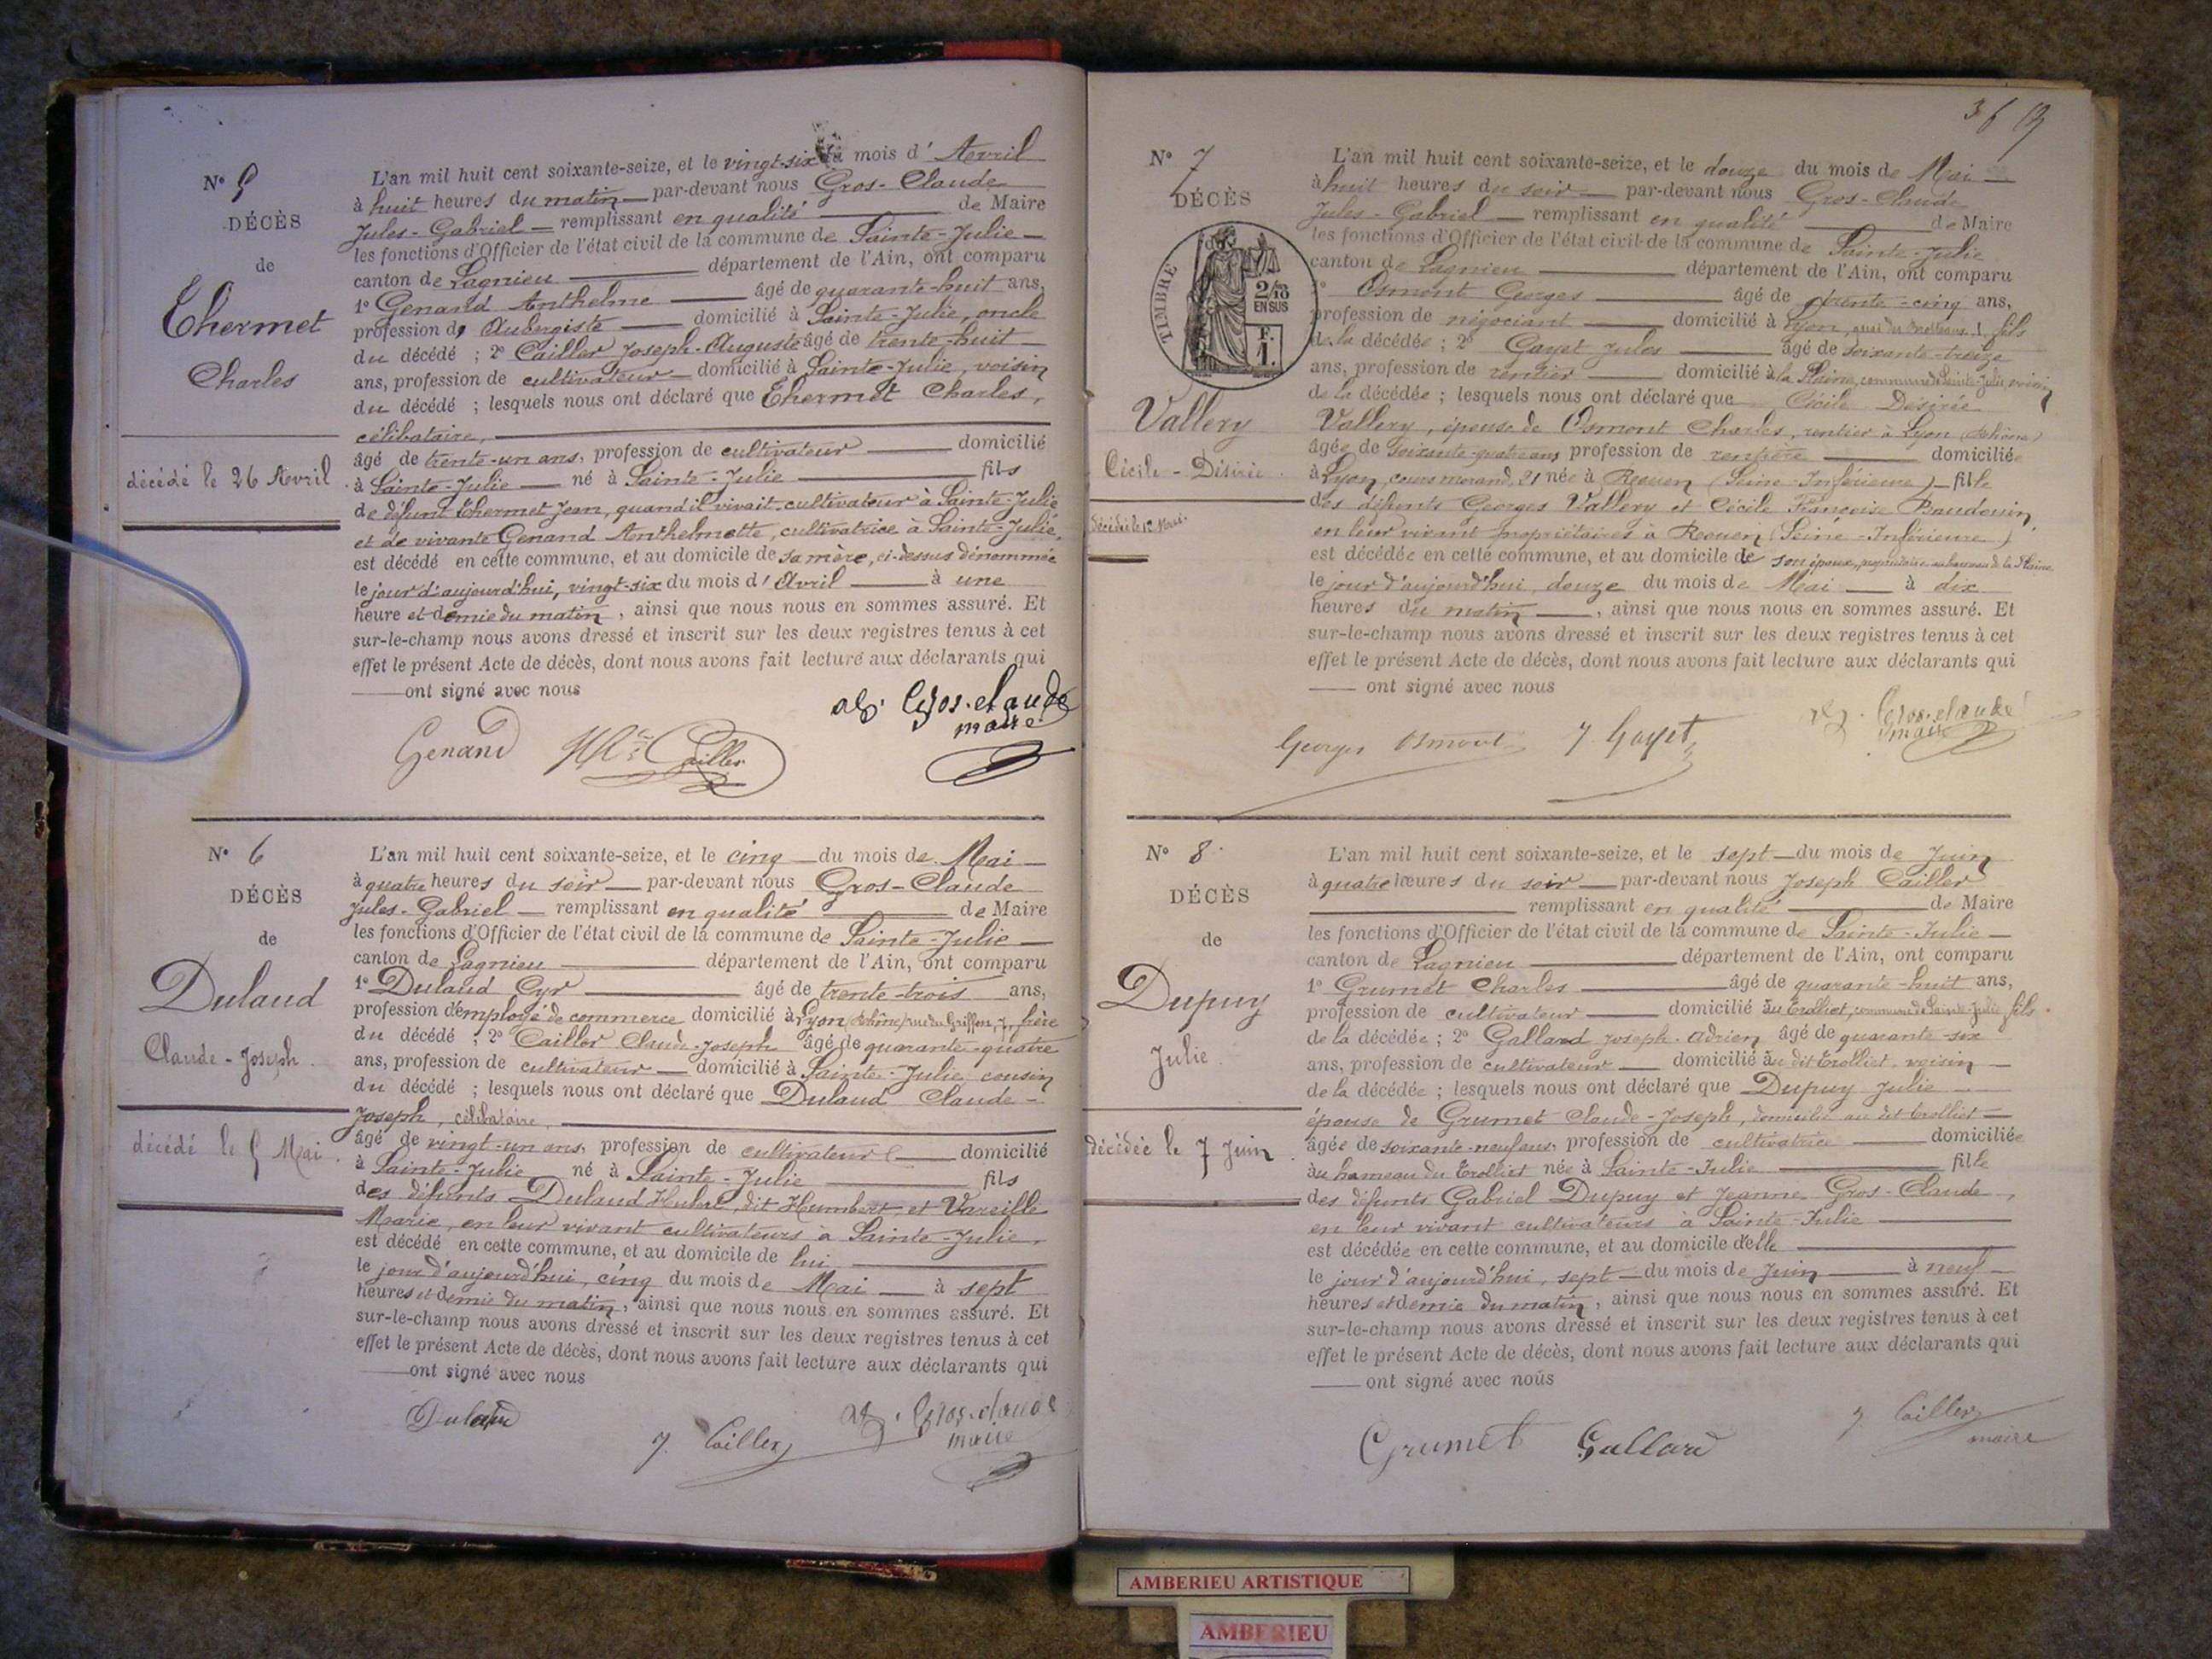 N° 5
DÉCÈS
de
Thermet
Charles
décédé le 26 Avril
L'an mil huit cent soixante-seize, et le vingt-six du mois d' Avril
à huit heures du matin par-devant nous Gros-Claude
Jules-Gabriel remplissant en qualité de Maire
les fonctions d'Officier de l'état civil de la commune de Sainte-Julie
canton de Lagnieu département de l'Ain, ont comparu
1° Genand Anthelme âgé de quarante-huit ans,
profession d' Aubergiste domicilié à Sainte-Julie, oncle
du décédé ; 2° Cailler Joseph-Auguste âgé de trente-huit
ans, profession de cultivateur domicilié à Sainte-Julie, voisin
du décédé ; lesquels nous ont déclaré que Thermet Charles,
célibataire,
âgé de trente-un ans, profession de cultivateur domicilié
à Sainte-Julie né à Sainte-Julie fils
de défunt Thermet Jean, quand il vivait cultivateur à Sainte-Julie
et de vivante Genand Anthelmette, cultivatrice à Sainte-Julie,
est décédé en cette commune, et au domicile de sa mère, ci-dessus dénommée
le jour d'aujourd'hui, vingt-six du mois d' Avril à une
heure et demie du matin, ainsi que nous nous en sommes assuré. Et
sur-le-champ nous avons dressé et inscrit sur les deux registres tenus à cet
effet le présent Acte de décès, dont nous avons fait lecture aux déclarants qui
ont signé avec nous
Gros-claude
maire
Genand Cailler
N° 6
DÉCÈS
de
Dulaud
Claude-Joseph
décédé le 5 Mai
L'an mil huit cent soixante-seize, et le cinq du mois de Mai
à quatre heures du soir par-devant nous Gros-Claude
Jules-Gabriel remplissant en qualité de Maire
les fonctions d'Officier de l'état civil de la commune de Sainte-Julie
canton de Lagnieu département de l'Ain, ont comparu
1° Dulaud Cyr âgé de trente-trois ans,
profession d'employé de commerce domicilié à Lyon (Rhône) rue du Griffon, 7, frère
du décédé ; 2° Cailler Claude-Joseph âgé de quarante-quatre
ans, profession de cultivateur domicilié à Sainte-Julie, cousin
du décédé ; lesquels nous ont déclaré que Dulaud Claude-
Joseph, célibataire,
âgé de vingt-un ans, profession de cultivateur domicilié
à Sainte-Julie né à Sainte-Julie fils
des défunts Dulaud Hubert, dit Humbert, et Vareille
Marie, en leur vivant cultivateurs à Sainte-Julie,
est décédé en cette commune, et au domicile de lui
le jour d'aujourd'hui, cinq du mois de Mai à sept
heures et demie du matin, ainsi que nous nous en sommes assuré. Et
sur-le-champ nous avons dressé et inscrit sur les deux registres tenus à cet
effet le présent Acte de décès, dont nous avons fait lecture aux déclarants qui
ont signé avec nous
Dulaud J. Cailler Gros-claude
maire
36
N° 7
DÉCÈS
TIMBRE
2/10
EN SUS
F.
1.
Vallery
Cécile-Désirée
décédée le 12 Mai.
L'an mil huit cent soixante-seize, et le douze du mois de Mai
à huit heures du soir par-devant nous Gros-Claude
Jules-Gabriel remplissant en qualité de Maire
les fonctions d'Officier de l'état civil de la commune de Sainte-Julie
canton de Lagnieu département de l'Ain, ont comparu
1° Osmont Georges âgé de trente-cinq ans,
profession de négociant domicilié à Lyon, quai des Brotteaux, 1, fils
de la décédée ; 2° Gayet Jules âgé de soixante-treize
ans, profession de rentier domicilié à la Plaine, commune de Sainte-Julie, voisin
de la décédée ; lesquels nous ont déclaré que Cécile Désirée
Vallery, épouse de Osmont Charles, rentier à Lyon (Rhône)
âgée de soixante-quatre ans profession de rentière domiciliée
à Lyon, cours morand, 21 née à Rouen (Seine-Inférieure) fille
des défunts Georges Vallery et Cécile Françoise Baudouin,
en leur vivant propriétaires à Rouen (Seine-Inférieure)
est décédée en cette commune, et au domicile de son époux, propriétaire au hameau de la Plaine
le jour d'aujourd'hui, douze du mois de Mai à dix
heures du matin, ainsi que nous nous en sommes assuré. Et
sur-le-champ nous avons dressé et inscrit sur les deux registres tenus à cet
effet le présent Acte de décès, dont nous avons fait lecture aux déclarants qui
ont signé avec nous
Georges Osmont J Gayet Gros-claude
maire
N° 8
DÉCÈS
de
Dupuy
Julie
décédée le 7 Juin
L'an mil huit cent soixante-seize, et le sept du mois de Juin
à quatre heures du soir par-devant nous Joseph Cailler
remplissant en qualité de Maire
les fonctions d'Officier de l'état civil de la commune de Sainte-Julie
canton de Lagnieu département de l'Ain, ont comparu
1° Grumet Charles âgé de quarante-huit ans,
profession de cultivateur domicilié au Trolliet, commune de Sainte-Julie fils
de la décédée ; 2° Galland Joseph-Adrien âgé de quarante-six
ans, profession de cultivateur domicilié au dit Trolliet, voisin
de la décédée ; lesquels nous ont déclaré que Dupuy Julie
épouse de Grumet Claude-Joseph, domicilié au dit Trolliet
âgée de soixante-neuf ans, profession de cultivatrice domiciliée
au hameau du Trolliet née à Sainte-Julie fille
des défunts Gabriel Dupuy et Jeanne Gros-Claude,
en leur vivant cultivateurs à Sainte-Julie
est décédée en cette commune, et au domicile d'elle
le jour d'aujourd'hui, sept du mois de Juin à neuf
heures et demie du matin, ainsi que nous nous en sommes assuré. Et
sur-le-champ nous avons dressé et inscrit sur les deux registres tenus à cet
effet le présent Acte de décès, dont nous avons fait lecture aux déclarants qui
ont signé avec nous
Grumet Galland J. Cailler
maire
AMBERIEU ARTISTIQUE
AMBERIEU